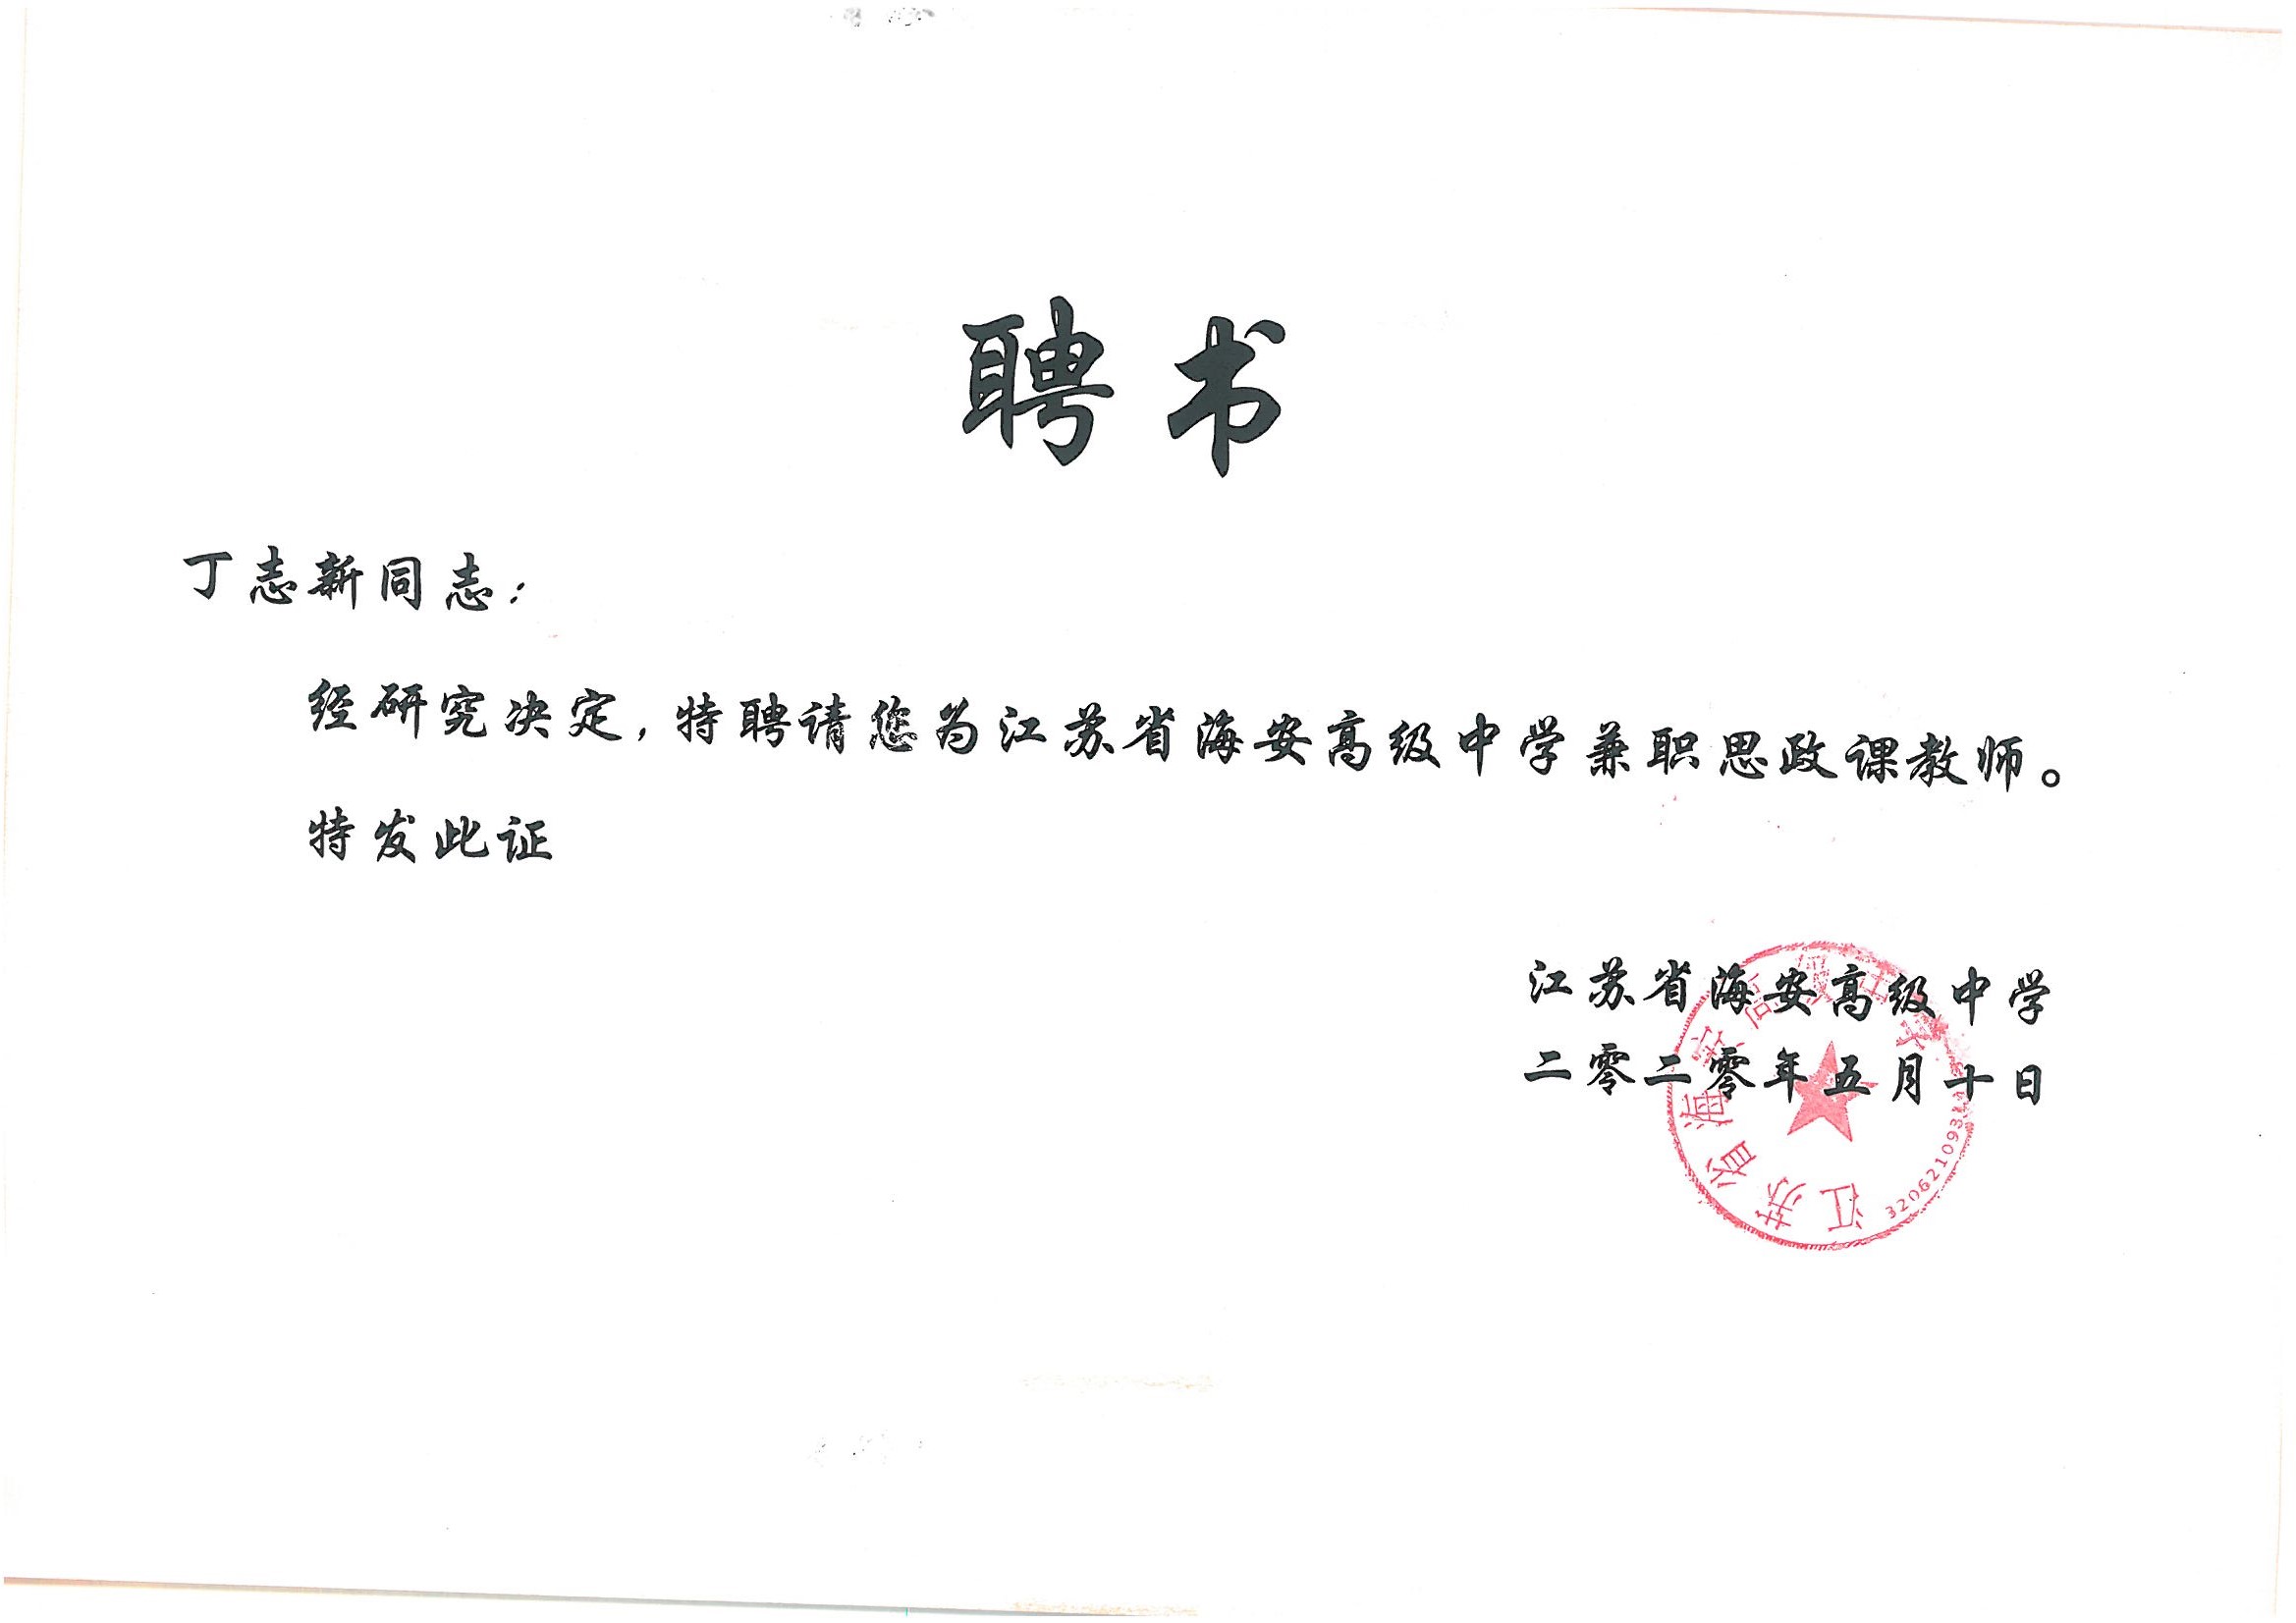 聘书
丁志新同志：
经研究决定，特聘请您为江苏省海安高级中学兼职思政课教师。
特发此证
江苏省海安高级中学
二零二零年五月十日
江苏省海安高级中学
320621093